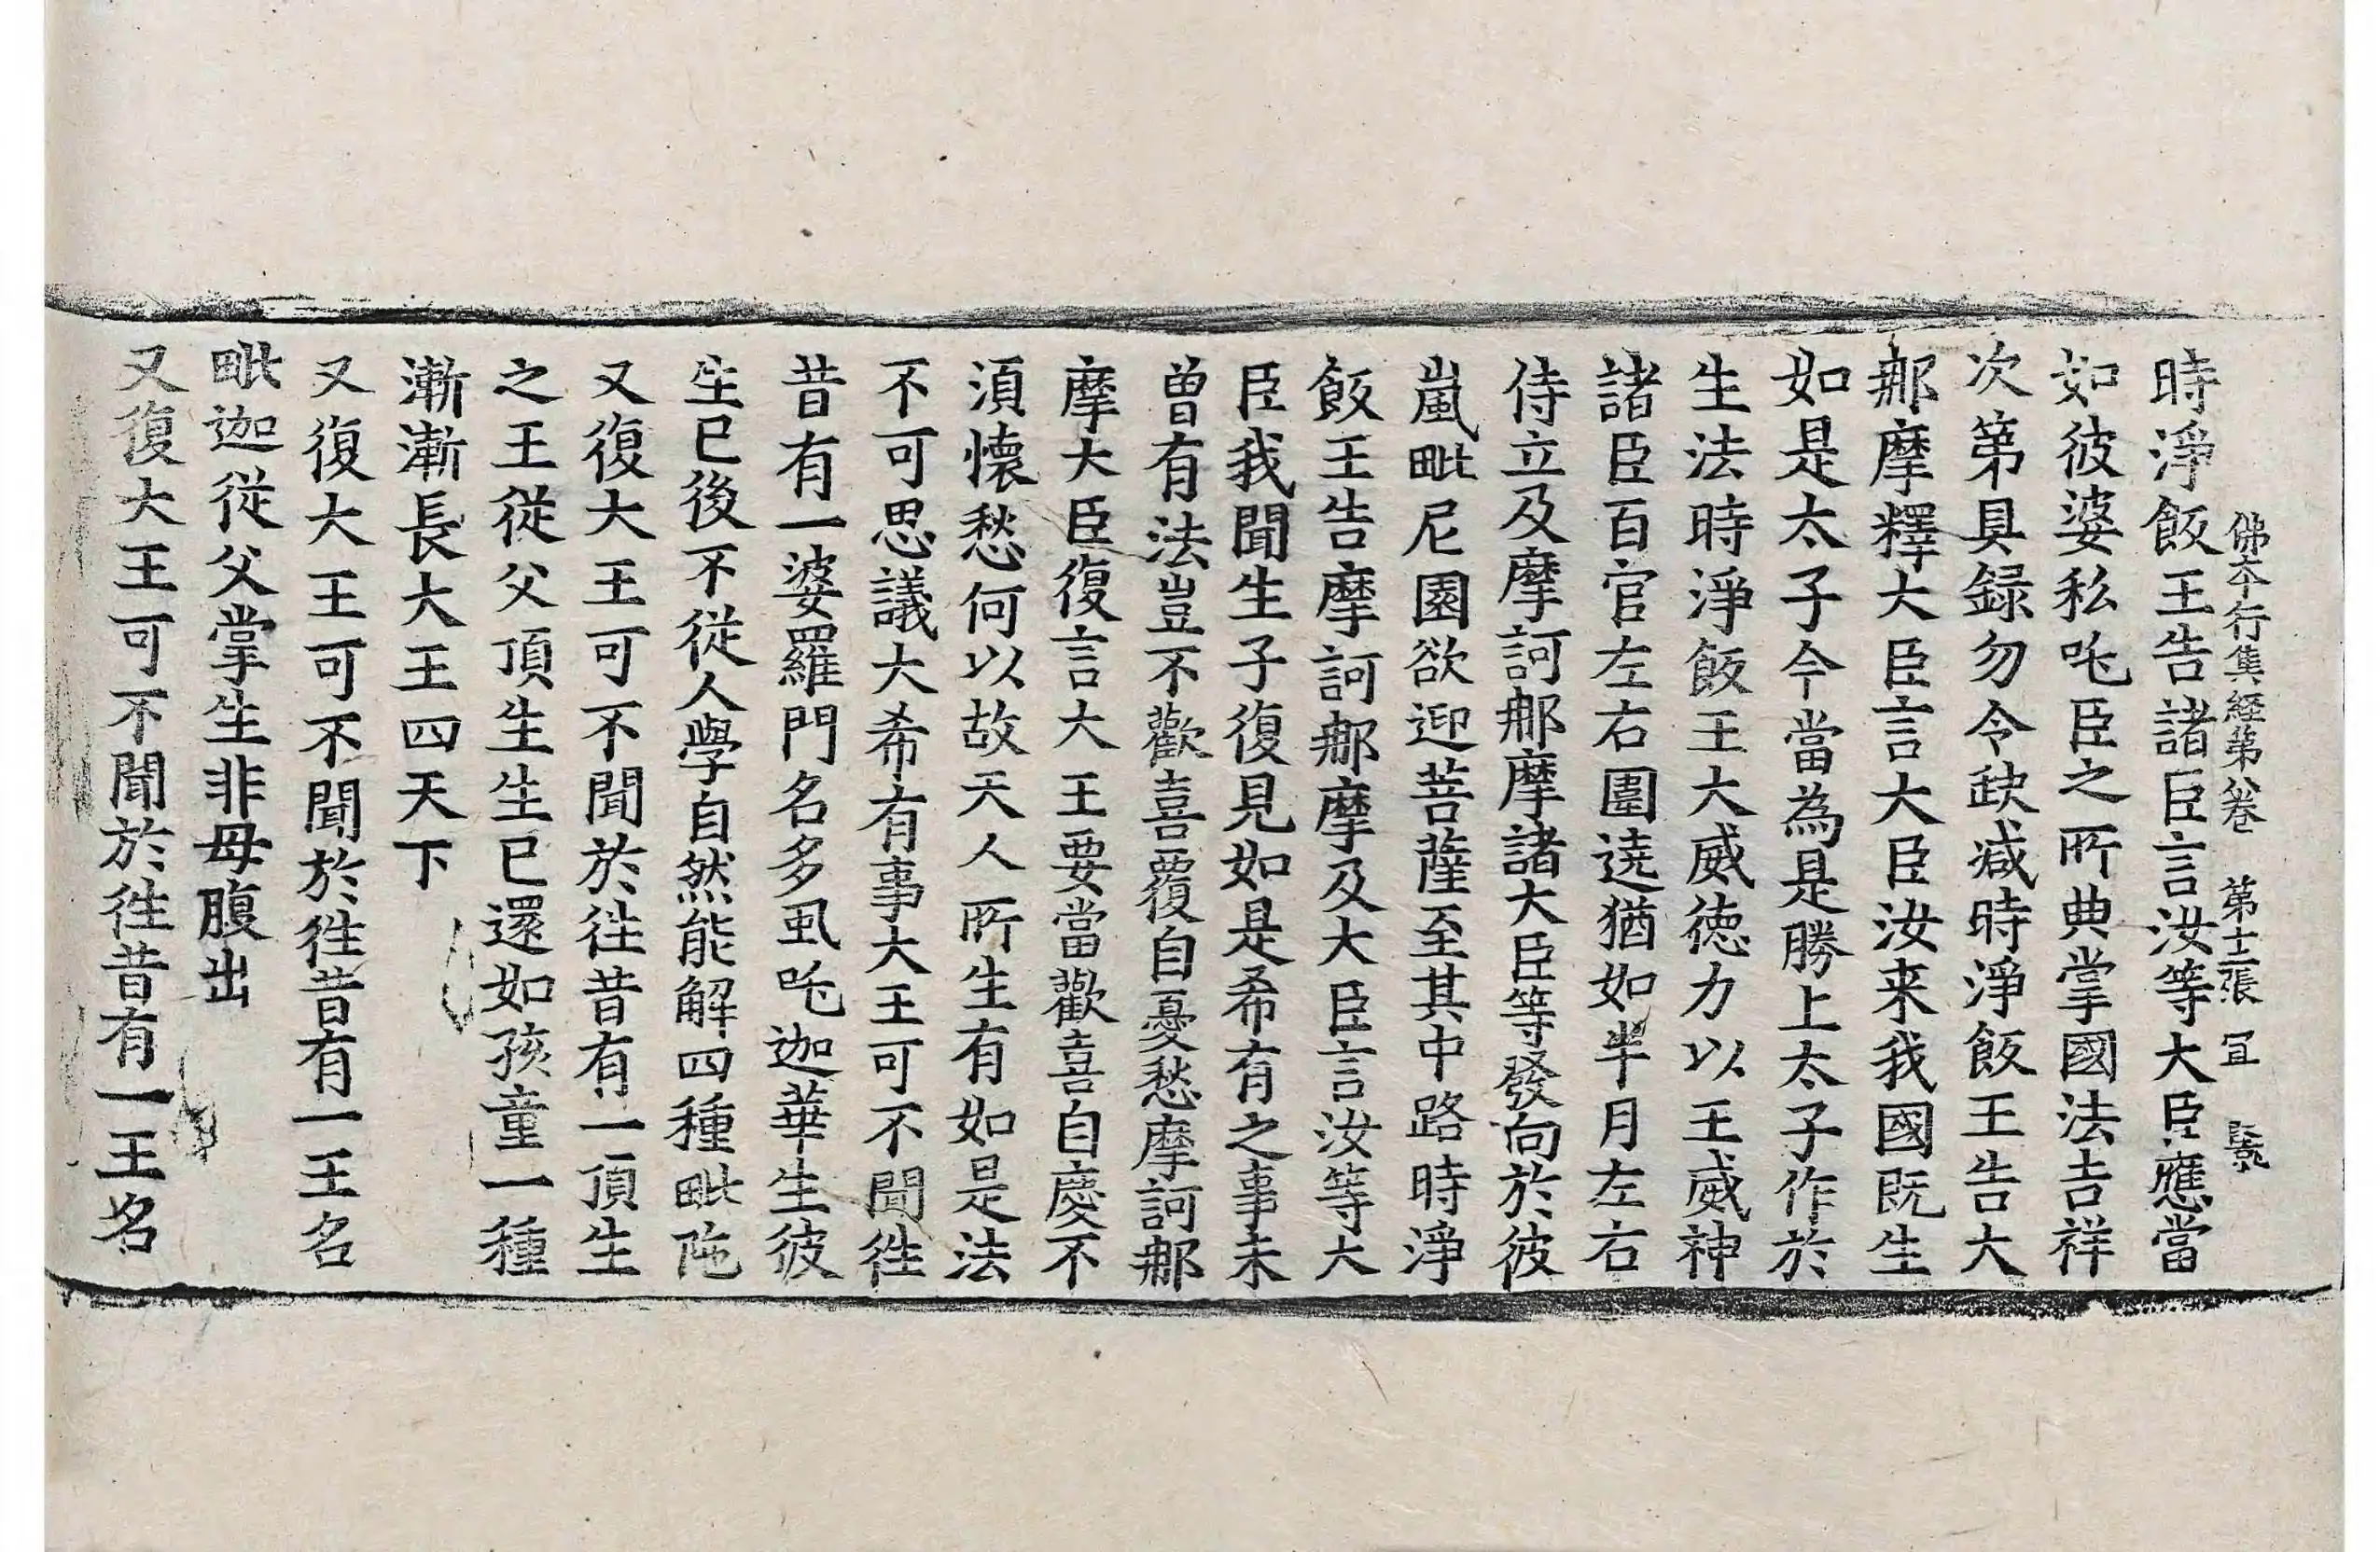 佛本行集經第八卷 第十二張 冝
時淨飯王告諸臣言汝等大臣應當
如彼婆私吒臣之所典掌國法吉祥
次第具録勿令缺減時淨飯王告大
那摩釋大臣言大臣汝来我國既生
如是太子今當為是勝上太子作於
生法時淨飯王大威徳力以王威神
諸臣百官左右圍遶猶如半月左右
侍立及摩訶那摩諸大臣等發向於彼
嵐毗尼園欲迎菩薩至其中路時淨
飯王告摩訶那摩及大臣言汝等大
臣我聞生子復見如是希有之事未
曾有法豈不歡喜覆自憂愁摩訶那
摩大臣復言大王要當歡喜自慶不
須懷愁何以故天人所生有如是法
不可思議大希有事大王可不聞徃
昔有一婆羅門名多虱吒迦華生彼
生已後不從人學自然能解四種毗陁
又復大王可不聞於徃昔有一頂生
之王從父頂生生已還如孩童一種
漸漸長大王四天下
又復大王可不聞於徃昔有一王名
毗迦從父掌生非母腹出
又復大王可不聞於徃昔有一王名